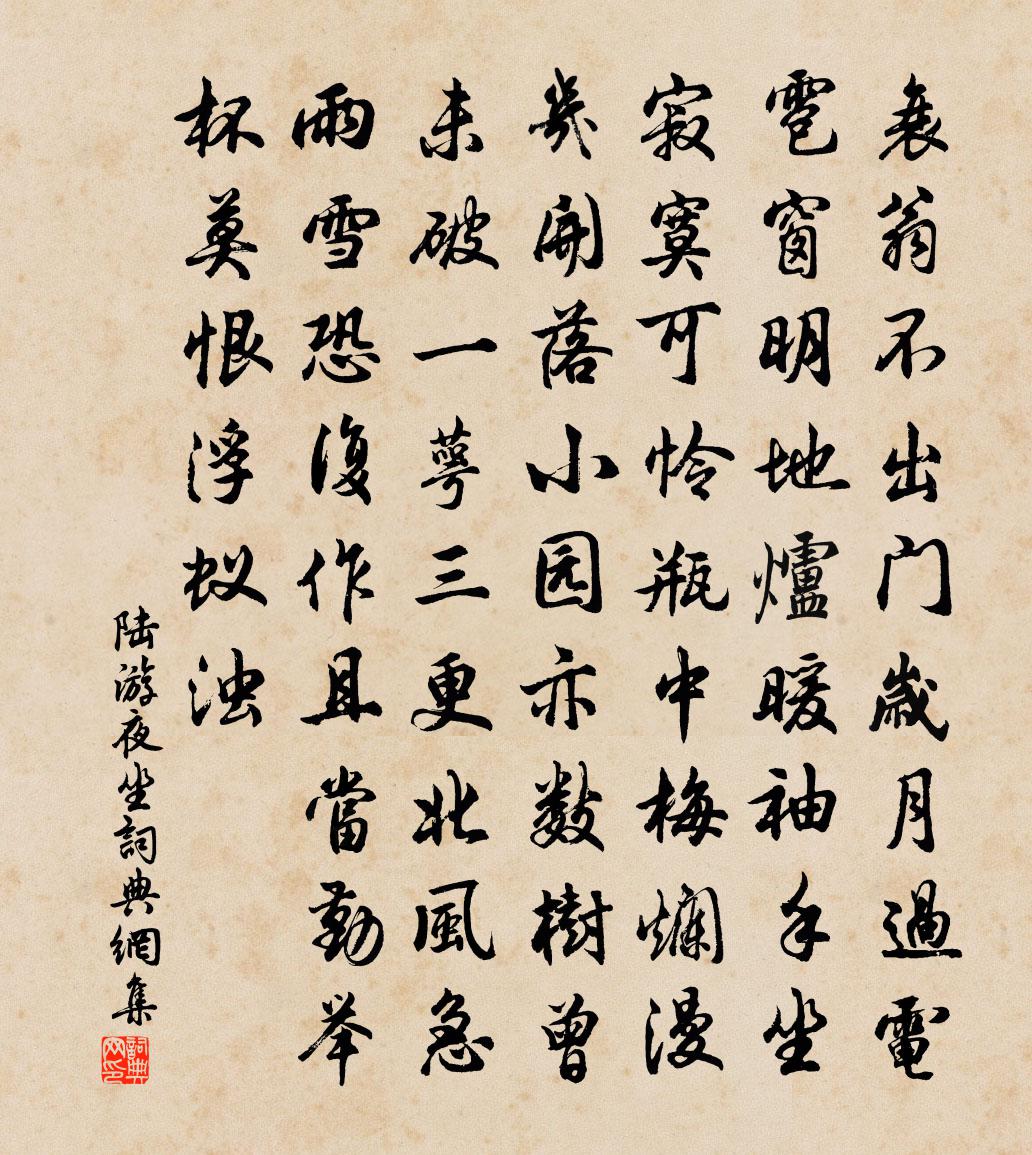 衰翁不出门歲月過電
雹窗明地爐暖袖手坐
寂寞可怜瓶中梅爛漫
幾開落小园亦数樹曾
未破一萼三更北風急
雨雪恐復作且當勤举
杯莫恨浮蚁浊
陆游夜坐詞典網集
詞典网印